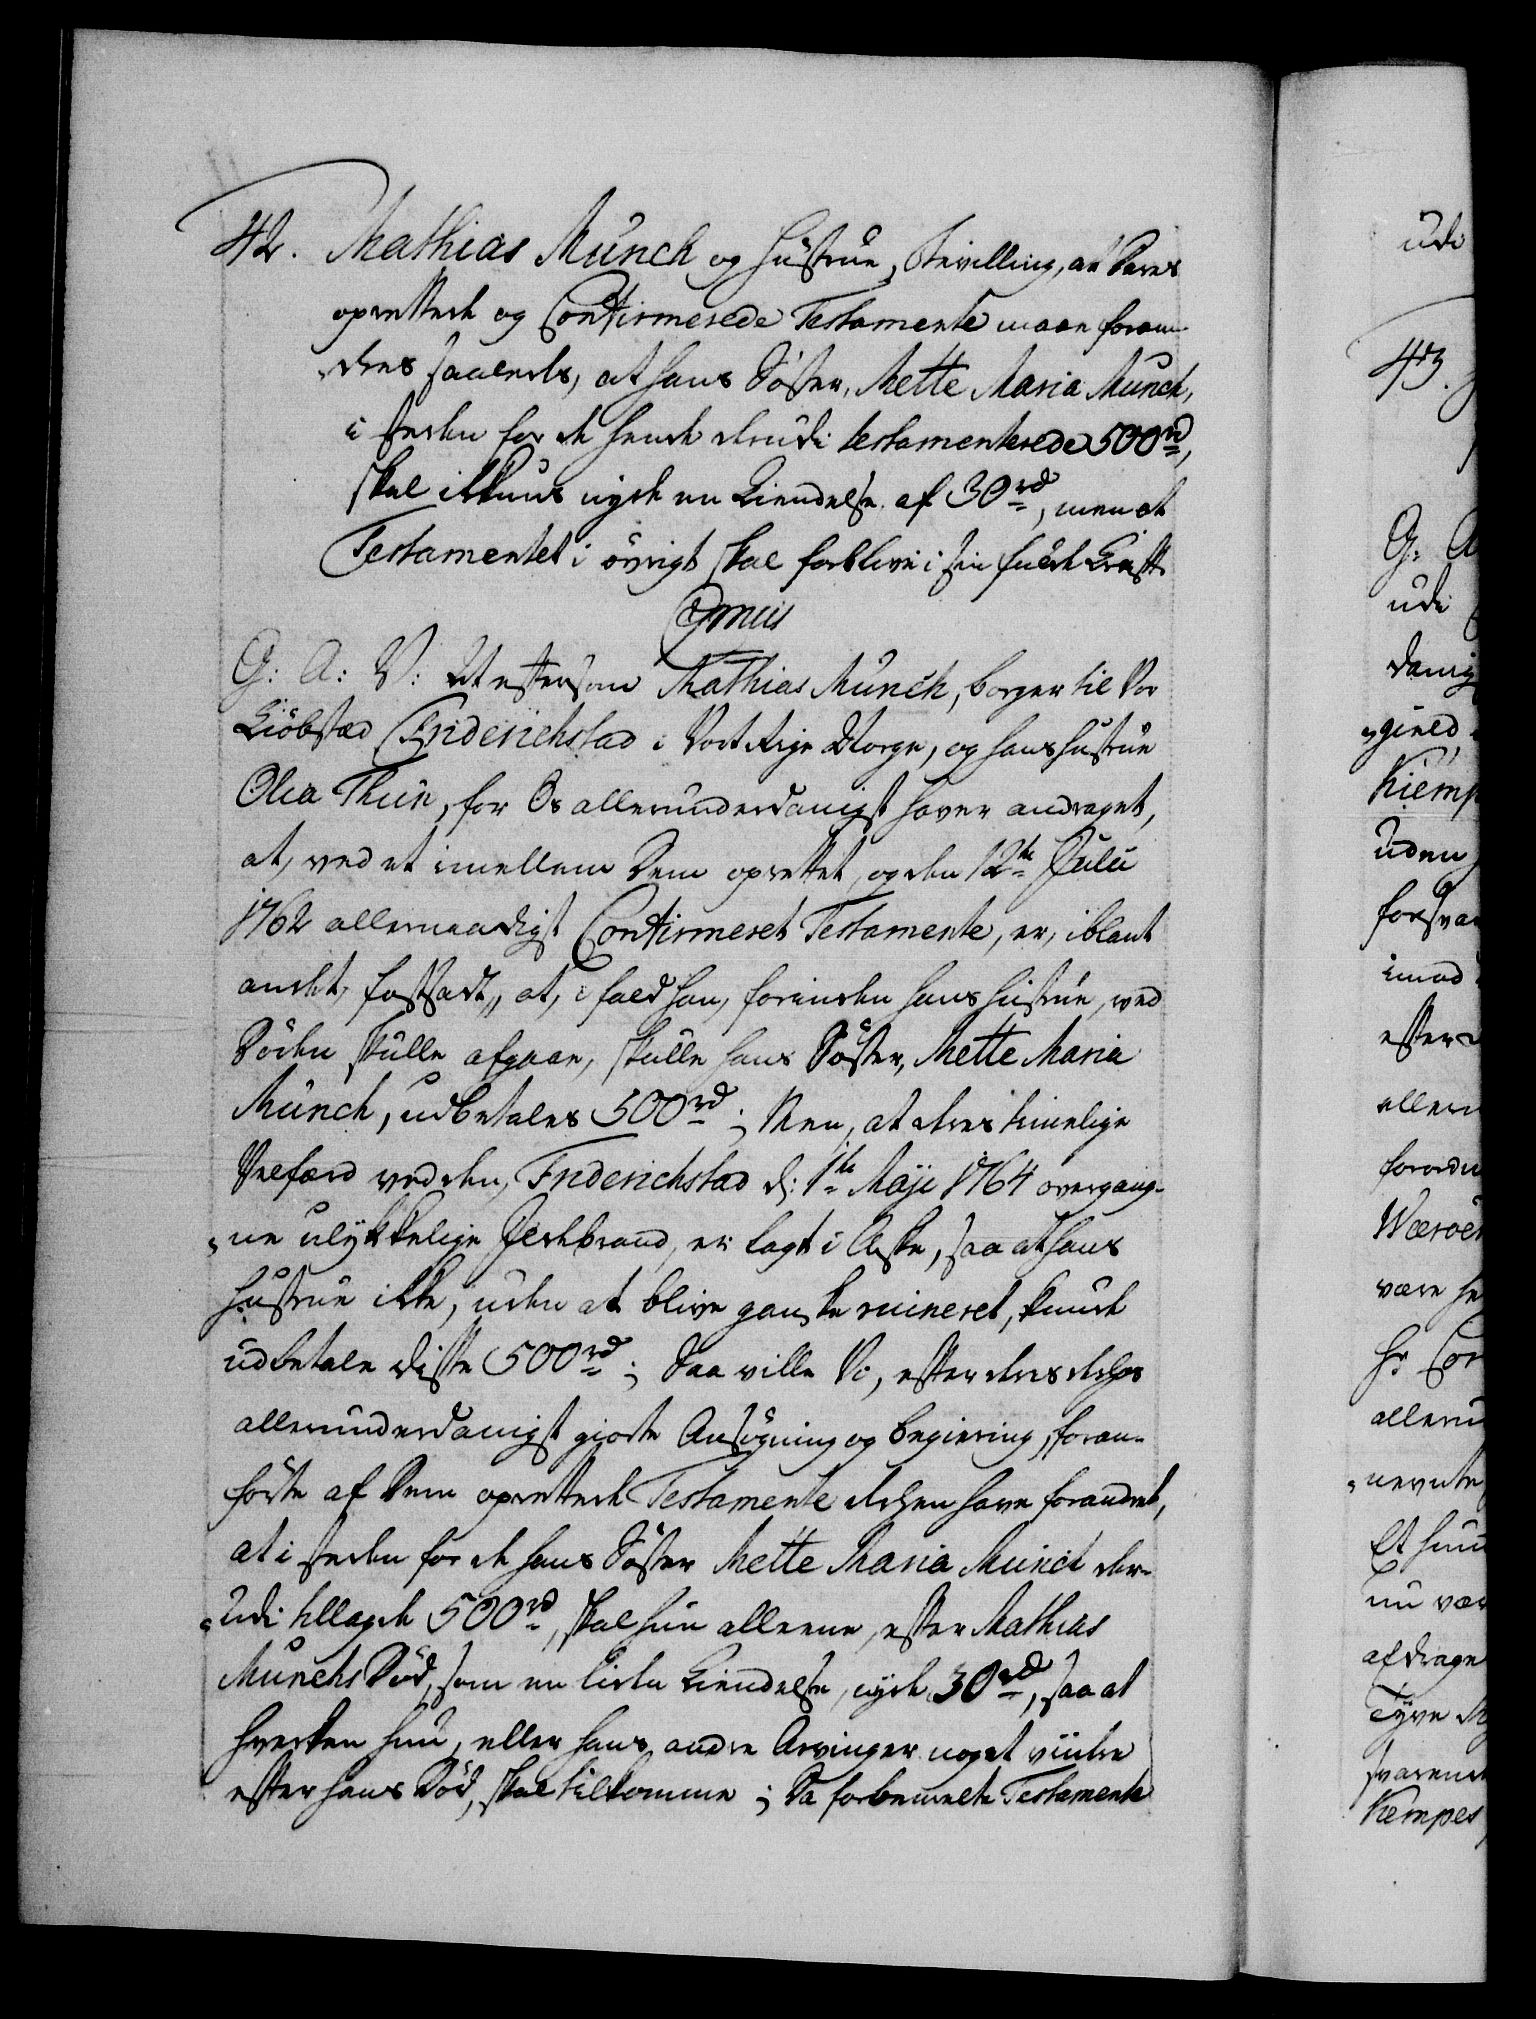 42. Mathias Münch og Hustrue, Bevilling, at deres
oprettede og Confirmerede Testamente maae foran-
dres saaleeds, at hans Söster, Mette Maria Münch,
i steden for de hende derudi testamenterede 500 rd,
skal ikkuns nyde en Kiendelse af 30 rd, men at
Testamentet i øvrigt skal forblive i sin fulde Kraft.
G: A: V: At eftersom Mathias Münch, borger til Vor
Kiöbstæd Friderichstad i Vort Rige Norge, og hans Hustrue
Olea Thün, for Os allerunderdanigst haver andraget,
at, ved et imellem dem oprettet, og den 12te Julii
1762 allernaadigst Confirmeret Testamente, er, iblant
andet, fastsadt, at, i fald han, forinden hans Hustrue, ved
Döden skulle afgaae, skulle hans Söster, Mette Maria
Münch, udbetales 500 rd; Men, at deres timelige
Velfærd ved den, Friderichstad d: 1te Maji 1764 overgang-
ne ulykkelige Ildebrand, er lagt i Aske, saa at hans
Hustrue ikke, uden at blive ganske ruineret, kunde
udbetale disse 500 rd; Saa ville Vi, efter deres derhos
allerunderdanigst giorte Ansögning og begiering, foran-
förte af dem oprettede Testamente derhen have forandret,
at i steden for de hans Söster Mette Maria Münch der-
udi tillagde 500 rd, skal hun alleene, efter Mathias
Münchs Död, som en liden Kiendelse, nyde 30 rd, saa at
hverken hun, eller hans andre Arvinger noget viidere
efter hans Död, skal tilkomme; Da forbemelte Testamente
udi
43.
G: A
udi
danig
gield,
Kiemp
uden
forsvar
imod
efter
aller
forordn
Wæröe
være he
Hr Con
alleru
nevnte
Et hun
nu vær
afdrage
Tyve
svarend
Kempes